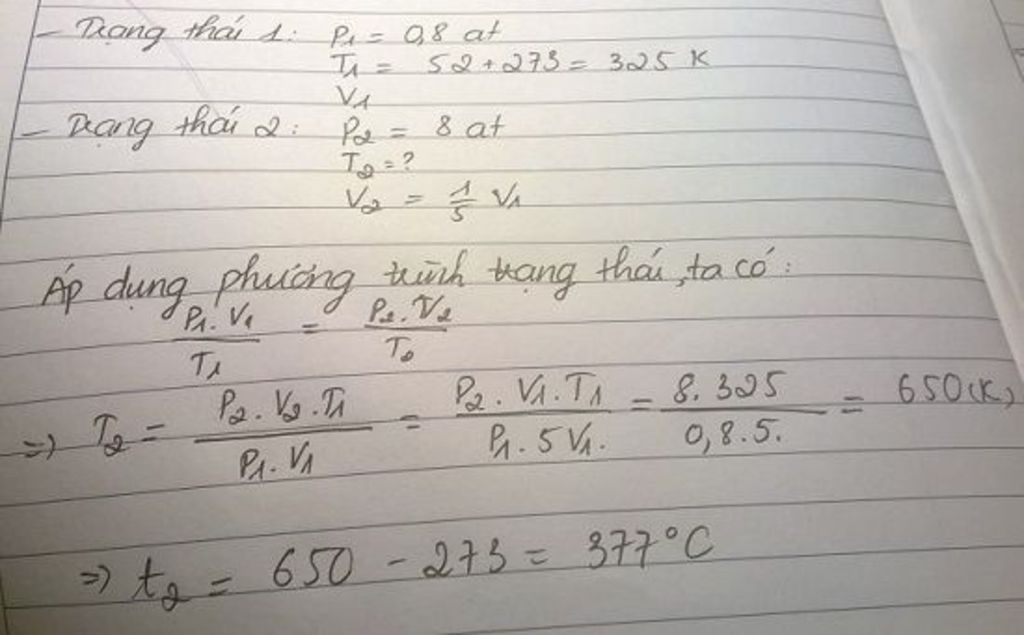 - Trạng thái 1: P1 = 0,8 at
T1 = 52 + 273 = 325 K
V1
- Trạng thái 2: P2 = 8 at
T2 = ?
V2 = 1/5 V1
Áp dụng phương trình trạng thái, ta có:
P1.V1/T1 = P2.V2/T2
=> T2 = P2.V2.T1/P1.V1 = P2.V1.T1/P1.5V1. = 8.325/0,8.5. = 650(K)
=> t2 = 650 - 273 = 377°C